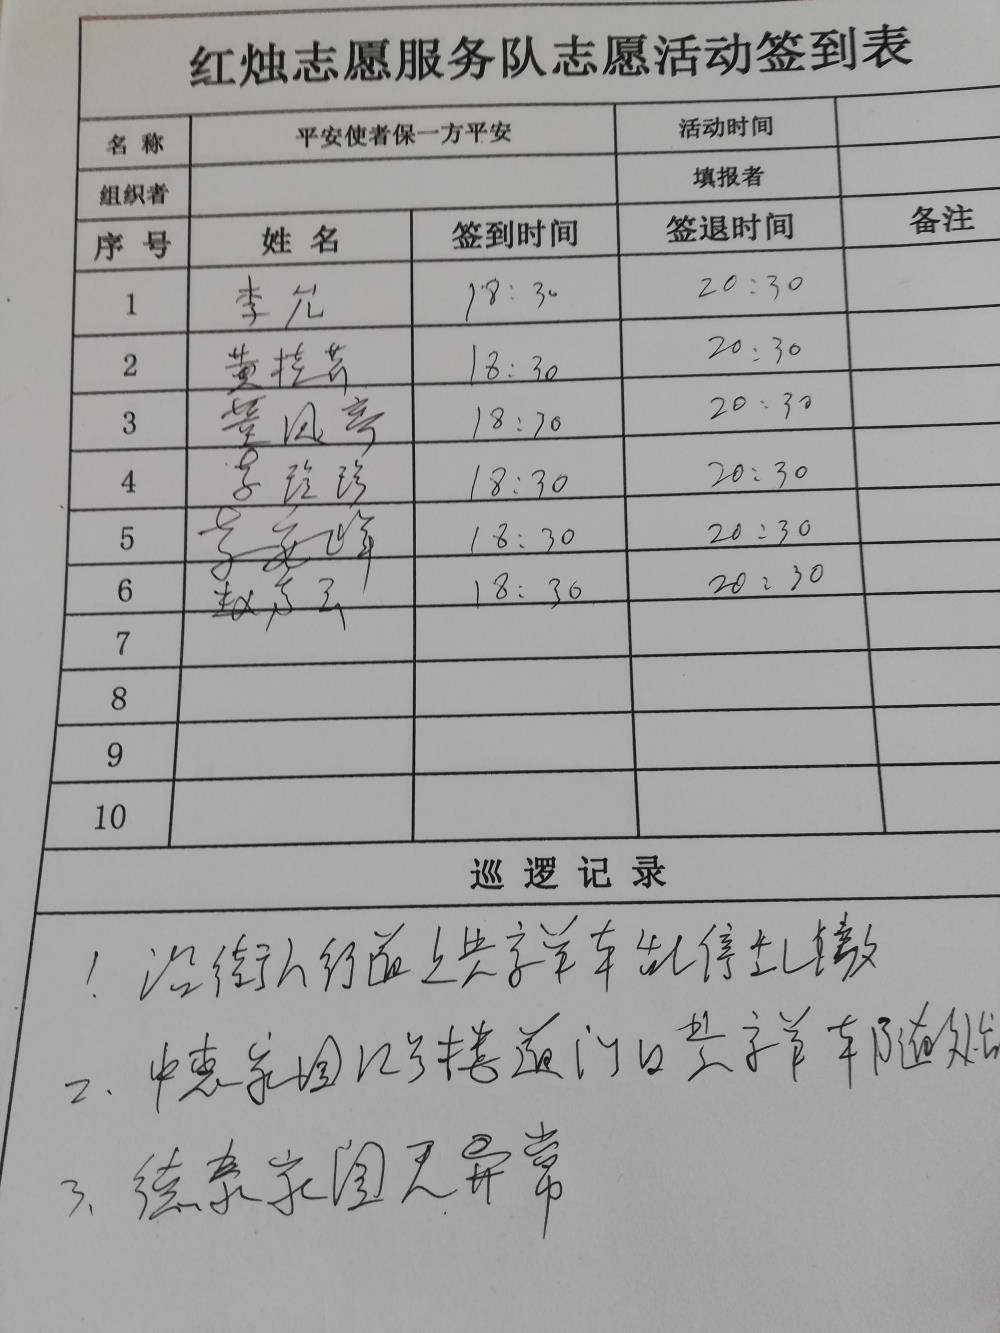 红烛志愿服务队志愿活动签到表
名 称 平安使者保一方平安 活动时间
组织者 填报者
序 号 姓 名 签到时间 签退时间 备注
1 李 18:30 20:30
2 黄桂芳 18:30 20:30
3 董凤奇 18:30 20:30
4 李珍珍 18:30 20:30
5 18:30 20:30
6 赵 18:30 20:30
7
8
9
10
巡 逻 记 录
1 沿街人行道上共享单车乱停乱放
2、中惠家园12号楼道门口共享单车随处
3、德泰家园无异常